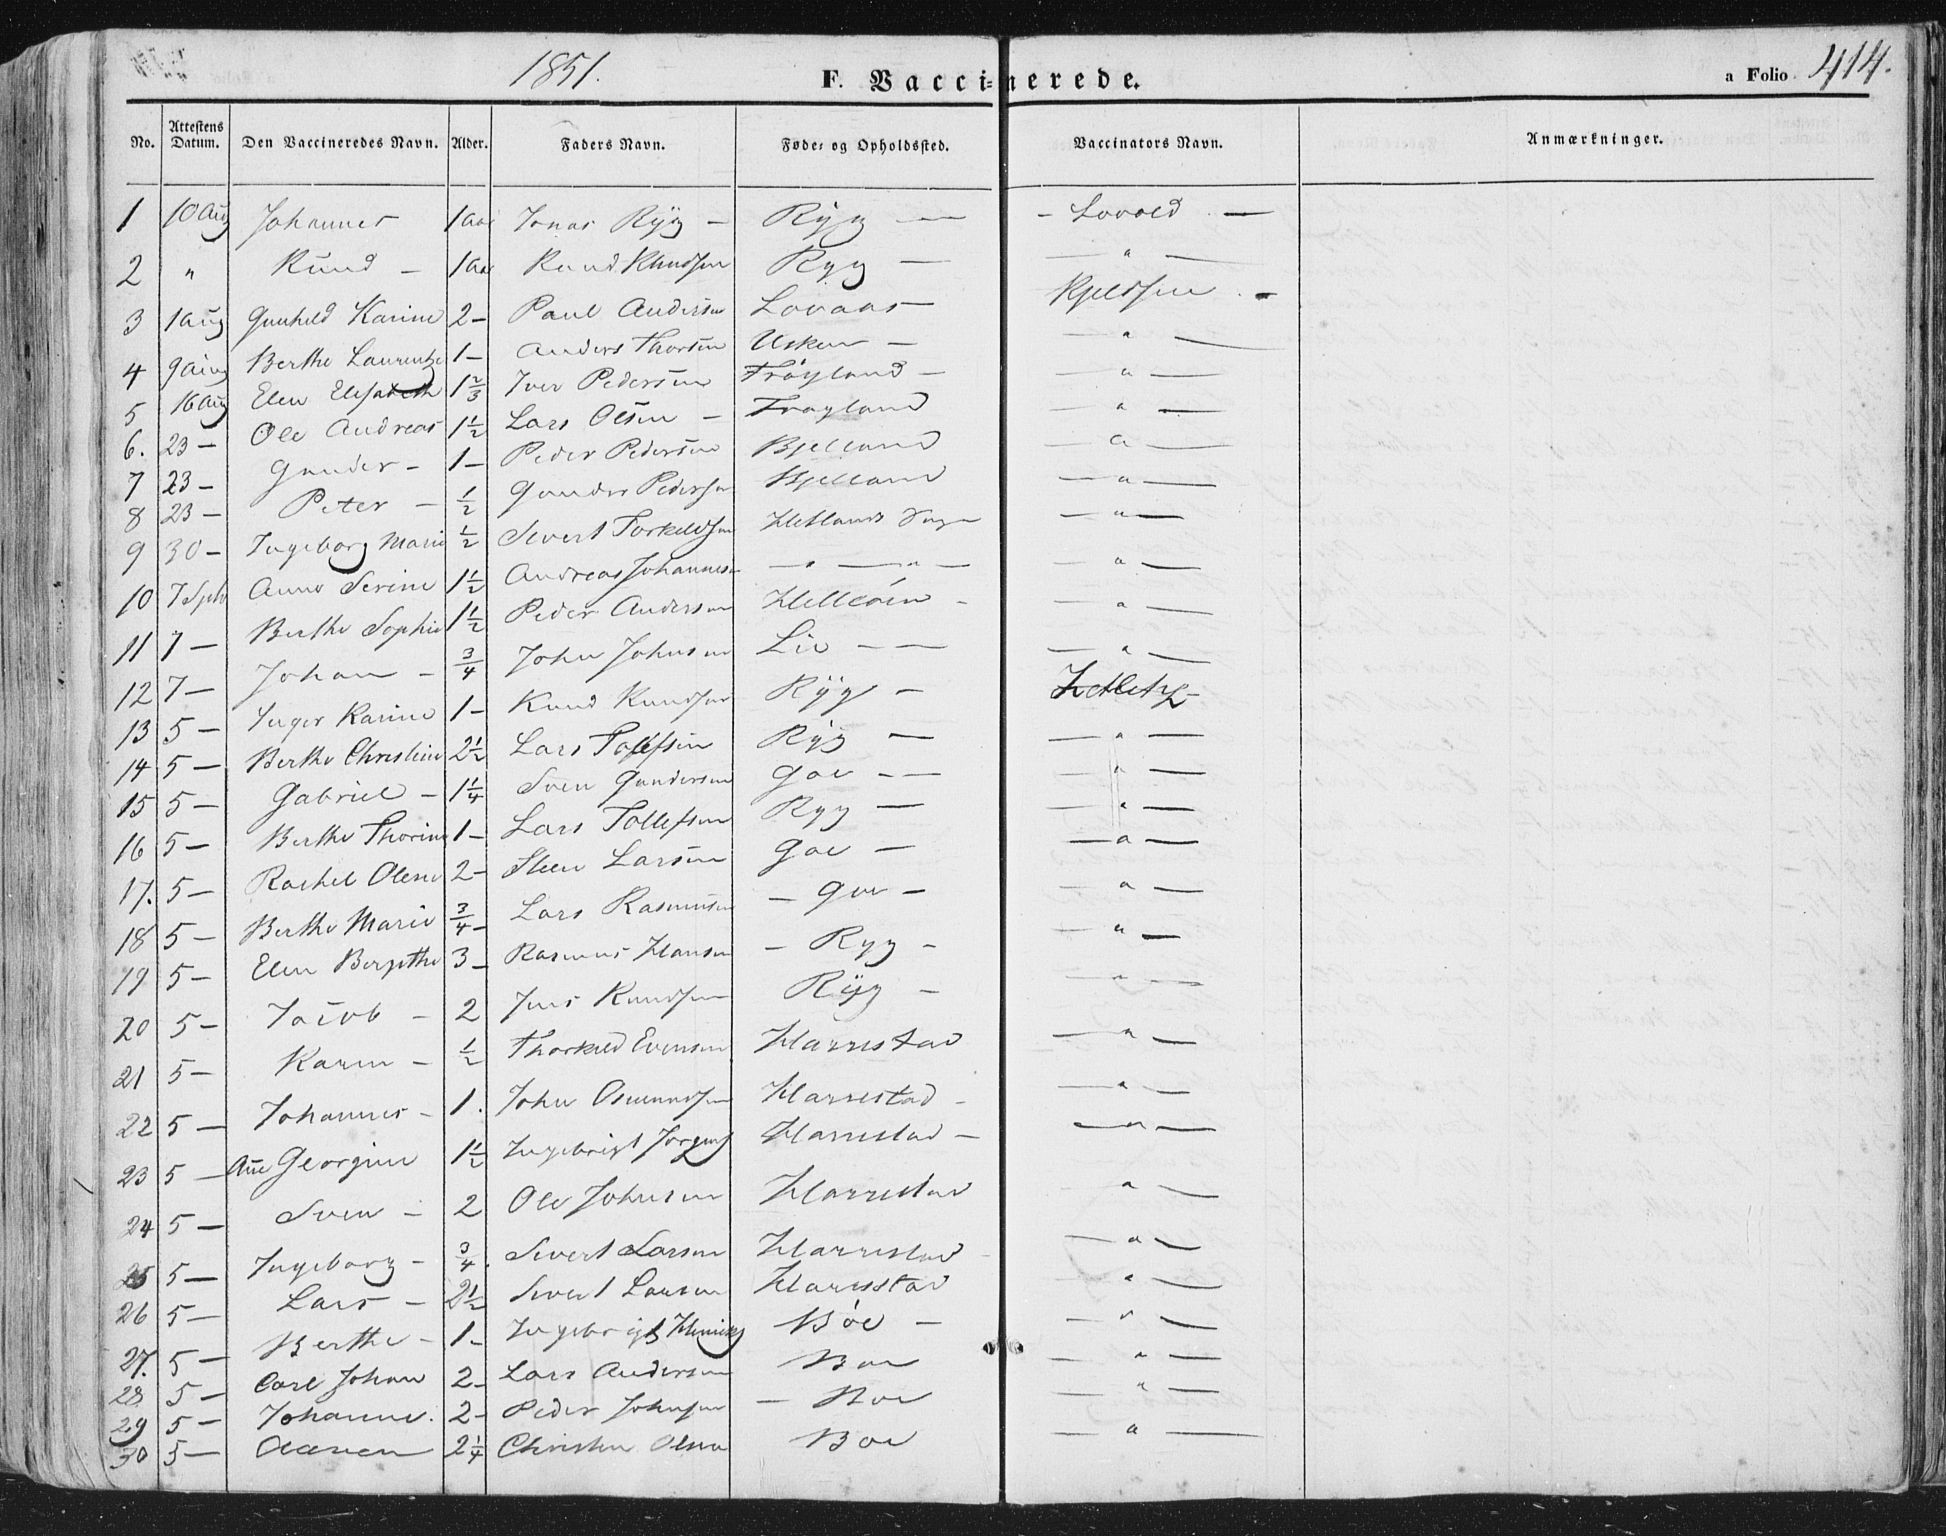 1851. F. Vaccinerede. a Folio 414.
No. Attestens Datum. Den Vaccineredes Navn. Alder. Faders Navn. Føde- og Opholdssted. Vaccinators Navn. Anmærkninger.
1 10 Aug Johannes 1 Jonas Ryg — Ryg — - Lovold. —
2 " Knud — 1 Knud Knudsen Ryg — — " —
3 1 Aug Gunhild Karine 2 - Paul Andersen Lovaas — Kjeldsen. -
4 9 Aug Berthe Laurentze 1 - Anders Thorsen Usken — — " —
5 16 Aug Elen Elisabeth 1 2/3 Iver Pedersen Frøyland — — " —
6. 23 - Ole Andreas 1 1/2 Lars Olsen — Frøyland — " —
7 23 - Gunder - 1 - Peder Pedersen Bjelland — " —
8 23 - Peter - 1/2 Gunder Pedersen Bjelland — " —
9 30 - Ingeborg Marie 1/2 Sivert Torkeldsen Hetlands Sogn — " —
10 7 Sptb Anne Serine 1 1/2 Andreas Johannesen — " — " — — " —
11 7 - Berthe Sophie 1 1/2 Peder Andersen — " —
12 7 - Johan - 3/4 John Johnsen Lie — — — " —
13 5 - Inger Karine 1 - Knud Knudsen Ryg — Hetletz -
14 5 - Berthe Christine 2 1/2 Lars Tollefsen Ryg — — " —
15 5 - Gabriel - 1 1/4 Sven Gundersen Goe — — — " —
16 5 - Berthe Thorine 1 - Lars Tollefsen Ryg — — " —
17. 5 - Rachel Olene 2 - Steen Larsen Goe — — " —
18 5 - Berthe Marie 3/4 - Lars Rasmusen — Goe — — " —
19 5 - Elen Bergithe 3 - Rasmus Hansen — Ryg - — " —
20 5 - Jacob - 2 Jens Knudsen Ryg — — " —
21 5 - Karen - 1/2 Thorkild Evensen Harrestad — " —
22 5 - Johannes - 1. John Osmundsen Harrestad - — " —
23 5 - Ane Georgine 1 1/2 Ingebrigt Jørgens Harrestad — — " —
24 5 - Sven - 2 Ole Johnsen Harrestad — " —
25 5 - Ingeborg - 3/4. Sivert Larsen Harrestad - — " —
26 5 - Lars - 2 1/2 Sivert Larsen Harrestad — " —
27. 5 - Berthe - 1 - Ingebrigt Bøe — — " —
28 5 - Carl Johan 2 - Lars Andersen Boe — " —
29 5 - Johanne. 2 - Peder Johnsen — Boe — " —
30 5 - Aanen 2 1/4 Christen Olsen Boe — " —